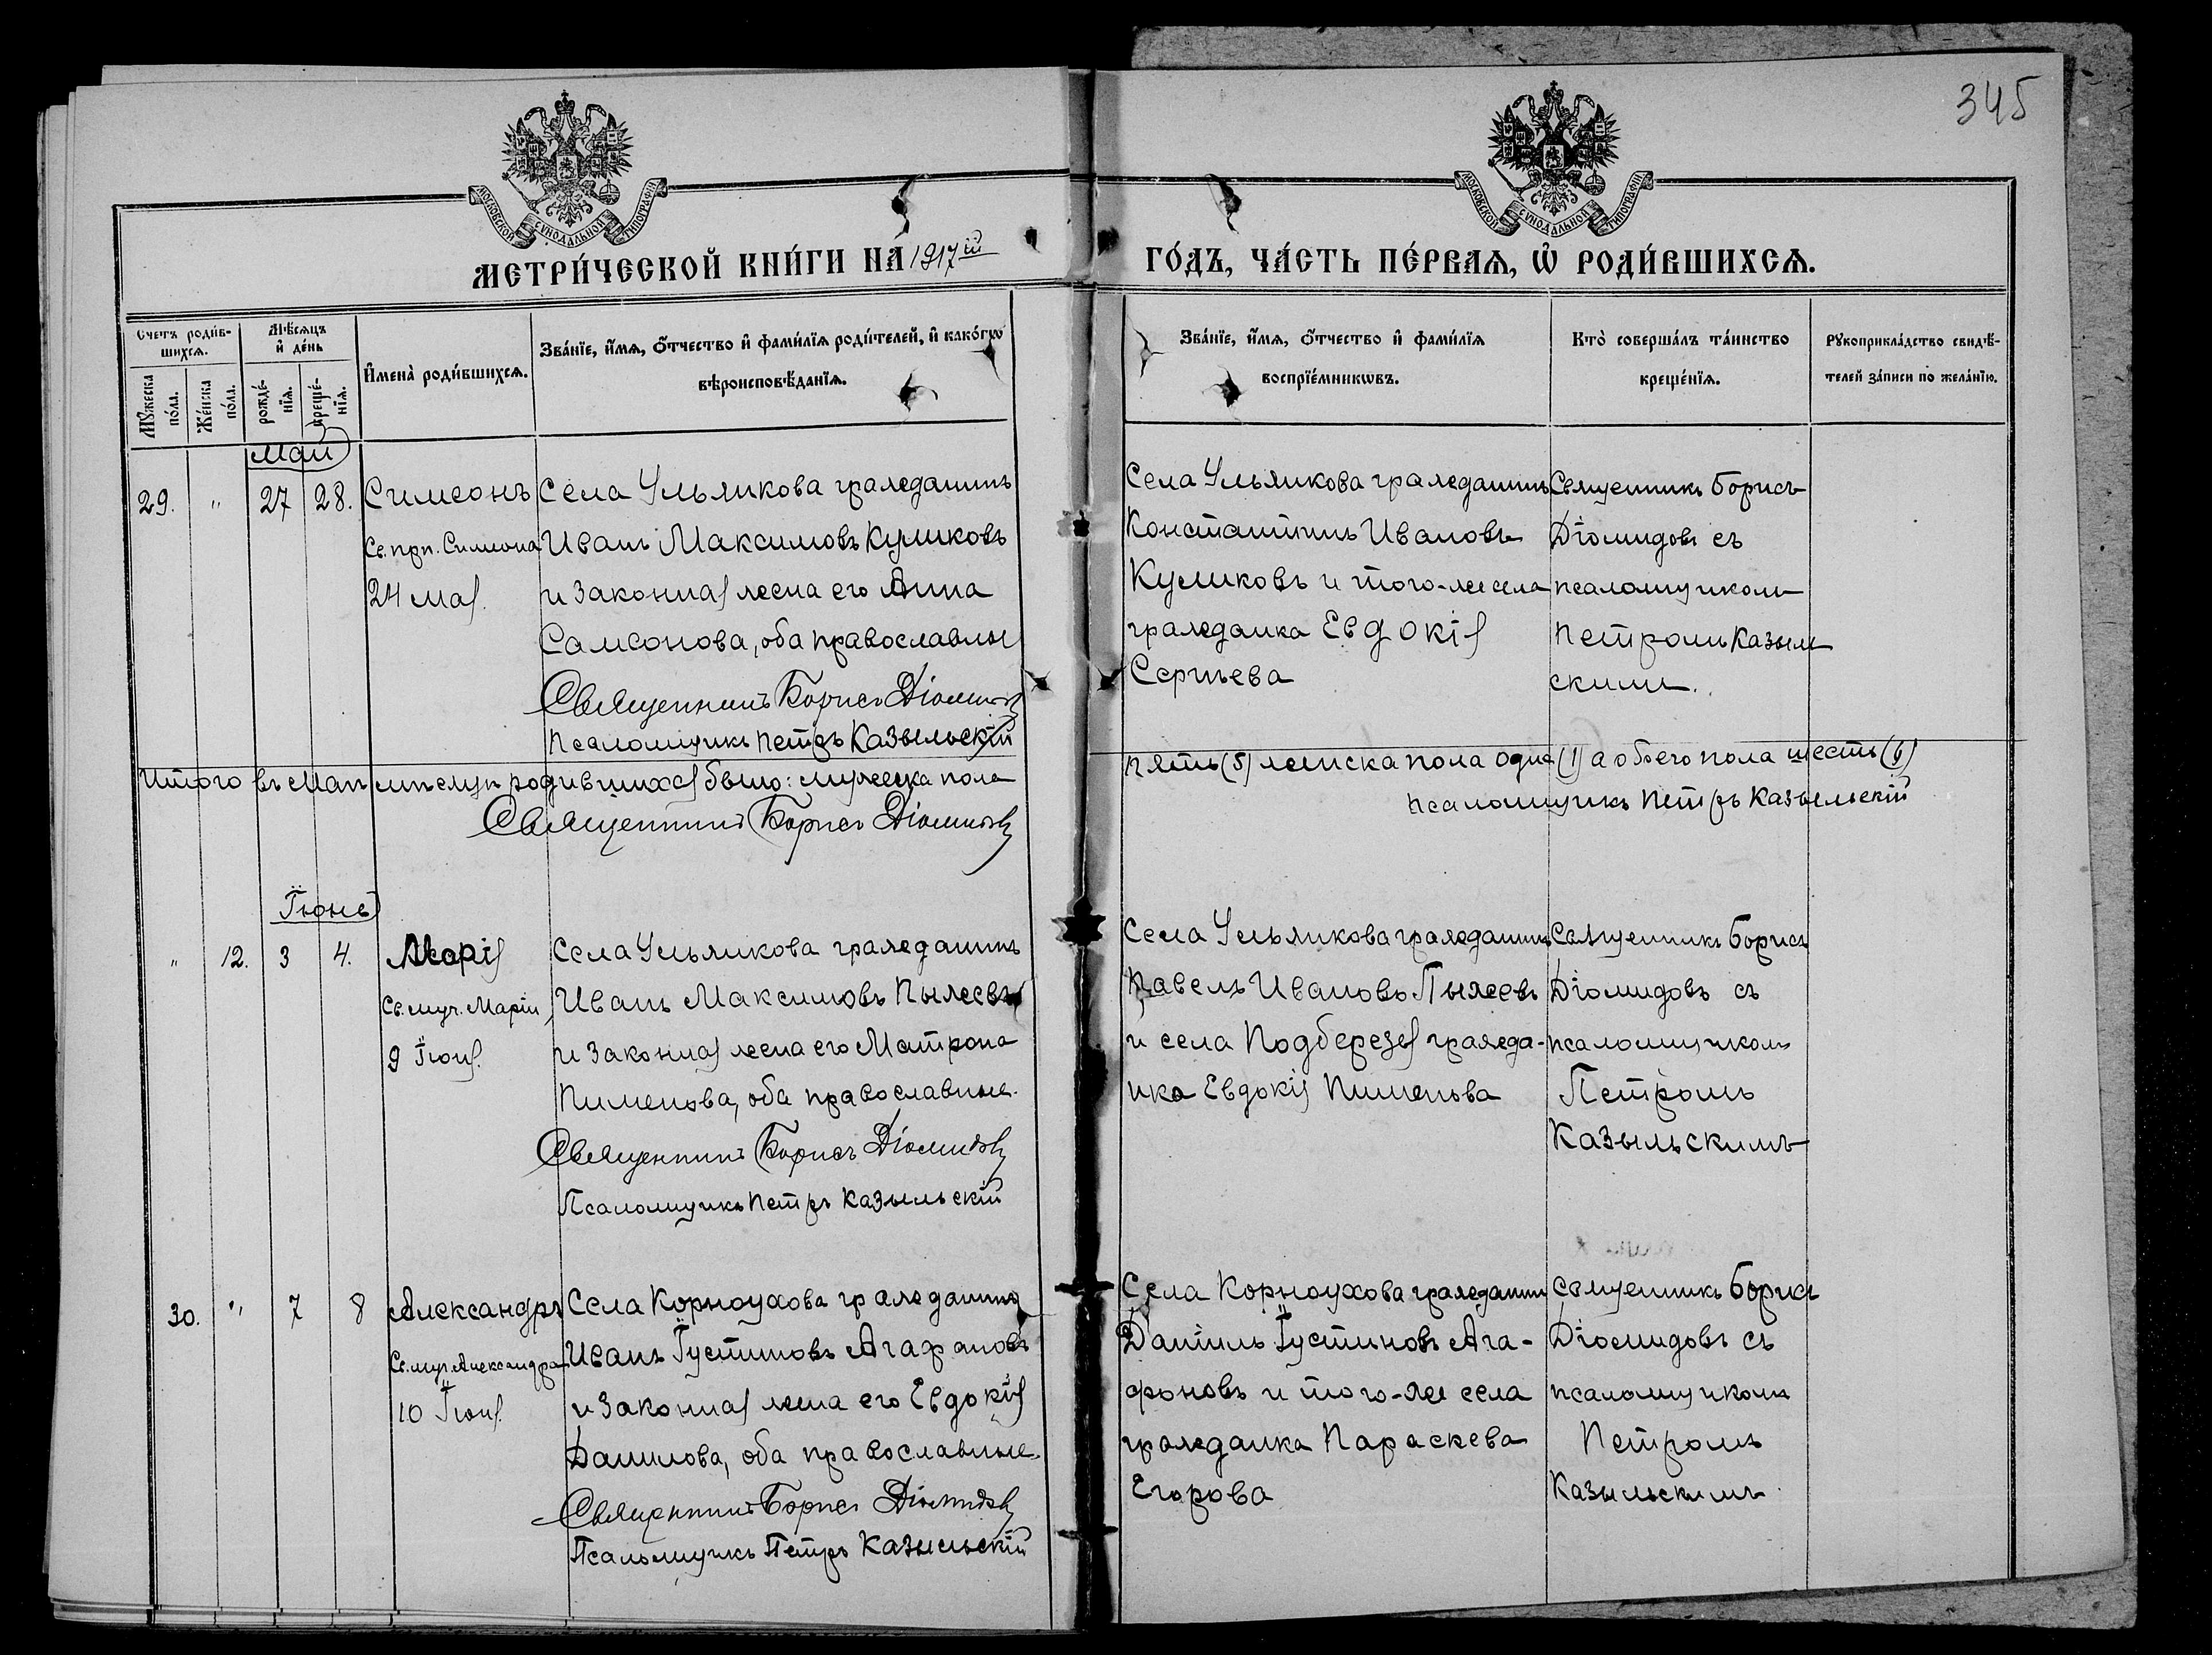 345
МОСКОВСКОЙ СУНОДАЛЬНОЙ ТИПОГРАФІИ
МОСКОВСКОЙ СУНОДАЛЬНОЙ ТИПОГРАФІИ
МЕТРИ́ЧЕСКОЙ КНИ́ГИ НА́ 1917ій
ГО́ДЪ, ЧА́СТЬ ПЕ́РВАѦ, Ѡ҆ РОДИ́ВШИХСѦ.
Счетъ роди́в-
шихсѧ.
Мꙋ́жеска
по́ла.
Же́нска
по́ла.
Мѣ́сѧцъ
и҆ де́нь
рожде́-
нїѧ.
креще́-
нїѧ.
И҆мена̀ роди́вшихсѧ.
Зва́нїе, и҆́мѧ, ѻ҆́тчество и҆ фами́лїѧ роди́телей, и҆ како́гѡ
вѣроисповѣ́данїѧ.
Зва́нїе, и҆́мѧ, ѻ҆́тчество и҆ фами́лїѧ
воспрїе́мникѡвъ.
Кто̀ соверша́лъ та́инство
креще́нїѧ.
Рꙋкоприкла́дство свидѣ́-
телей за́писи по жела́нїю.
Май
29. " 27 28. Симеонъ
Св. прп. Симеона
24 мая.
Села Ульянкова гражданинъ
Иванъ Максимовъ Куликовъ
и законная жена его Анна
Самсонова, оба православные
Священникъ Борисъ Діомидовъ
Псаломщикъ Петръ Казыльскій
Села Ульянкова гражданинъ
Константинъ Ивановъ
Куликовъ и того-же села
гражданка Евдокія
Сергѣева
Священникъ Борисъ
Діомидовъ съ
псаломщикомъ
Петромъ Казыль
скимъ.
Итого въ Маѣ мѣсяцѣ родившихся было: мужеска пола
пять (5) женска пола одна (1) а обоего пола шесть (6)
Священникъ Борисъ Діомидовъ
Псаломщикъ Петръ Казыльскій
Іюнь
" 12. 3 4. Марія
Св. муч. Маріи
9 Іюня.
Села Ульянкова гражданинъ
Иванъ Максимовъ Пыжеевъ
и законная жена его Матрона
Пименова, оба православные.
Священникъ Борисъ Діомидовъ
Псаломщикъ Петръ Казыльскій
Села Ульянкова гражданинъ
Павелъ Ивановъ Пыжеевъ
и села Подберезья гражда-
нка Евдокія Пименова
Священникъ Борисъ
Діомидовъ съ
псаломщикомъ
Петромъ
Казыльскимъ
30. " 7 8 Александръ
Св. муч. Александра
10 Іюня.
Села Корноухова гражданинъ
Иванъ Іустиновъ Агафоновъ
и законная жена его Евдокія
Данилова, оба православные.
Священникъ Борисъ Діомидовъ
Псаломщикъ Петръ Казыльскій
Села Корноухова гражданинъ
Даніилъ Іустиновъ Ага-
фоновъ и того-же села
гражданка Параскева
Егорова
Священникъ Борисъ
Діомидовъ съ
псаломщикомъ
Петромъ
Казыльскимъ.